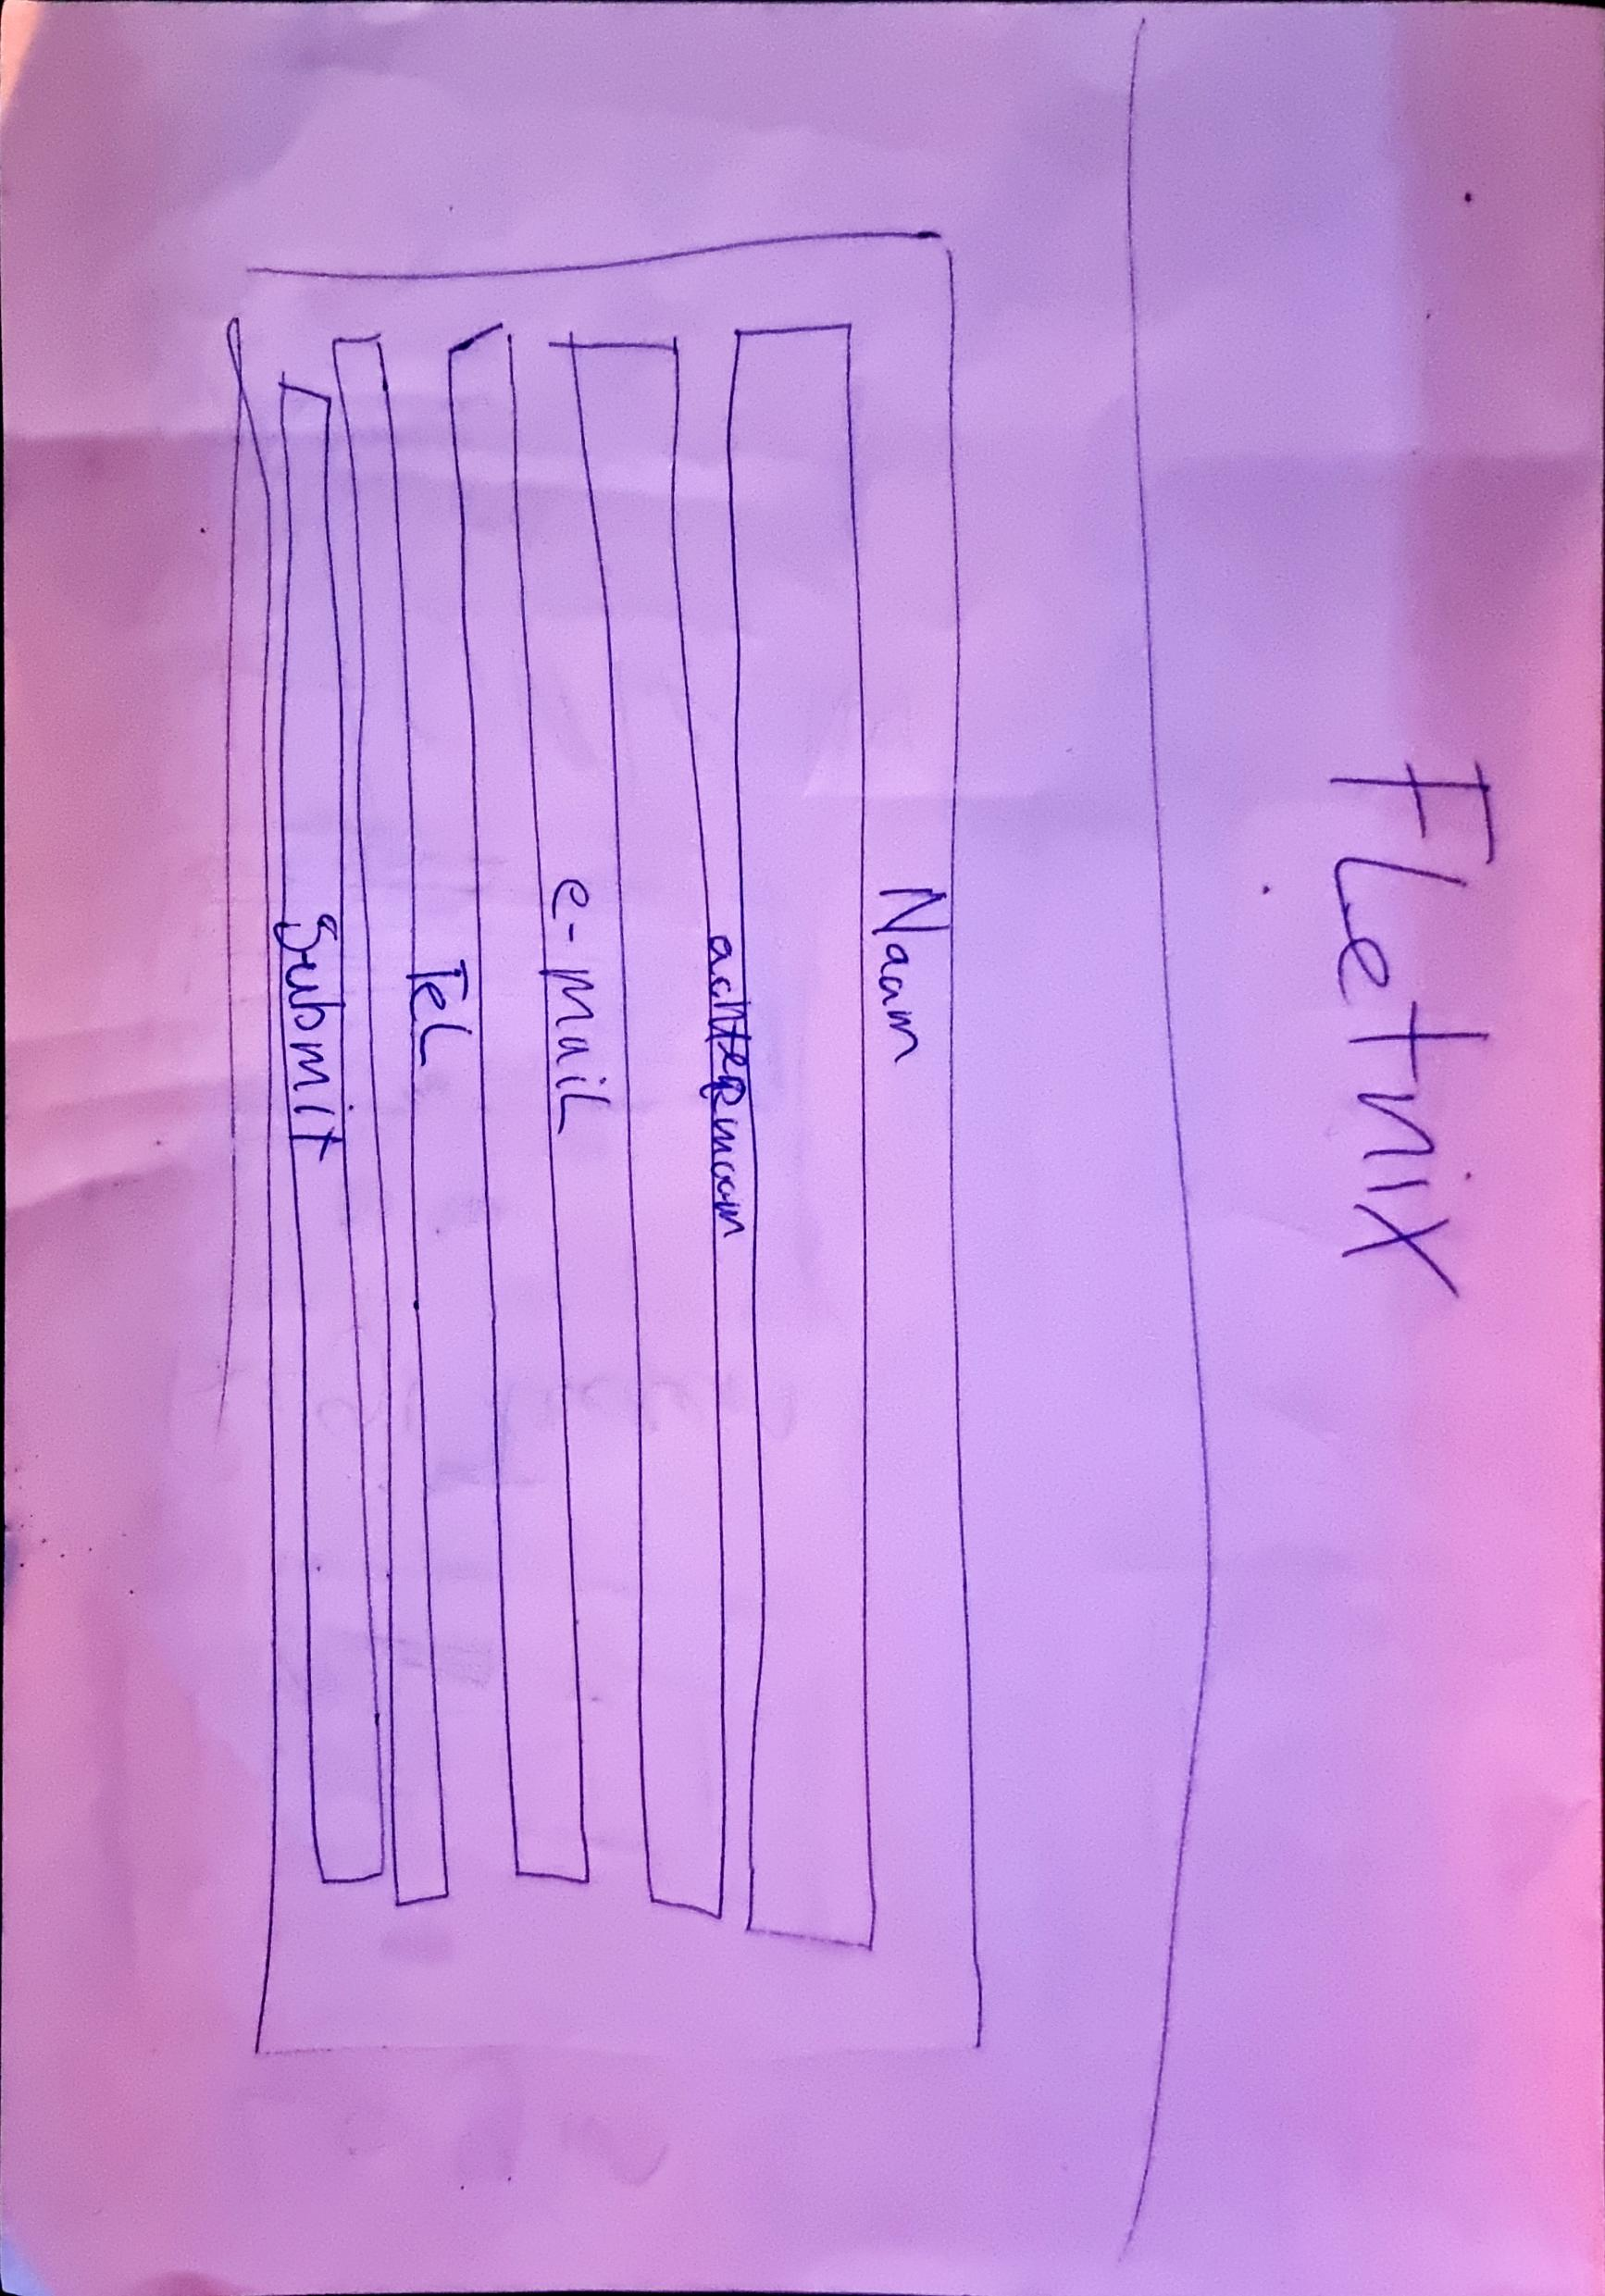 FLetnix
Naam
achternaam
e-mail
Tel
Submit